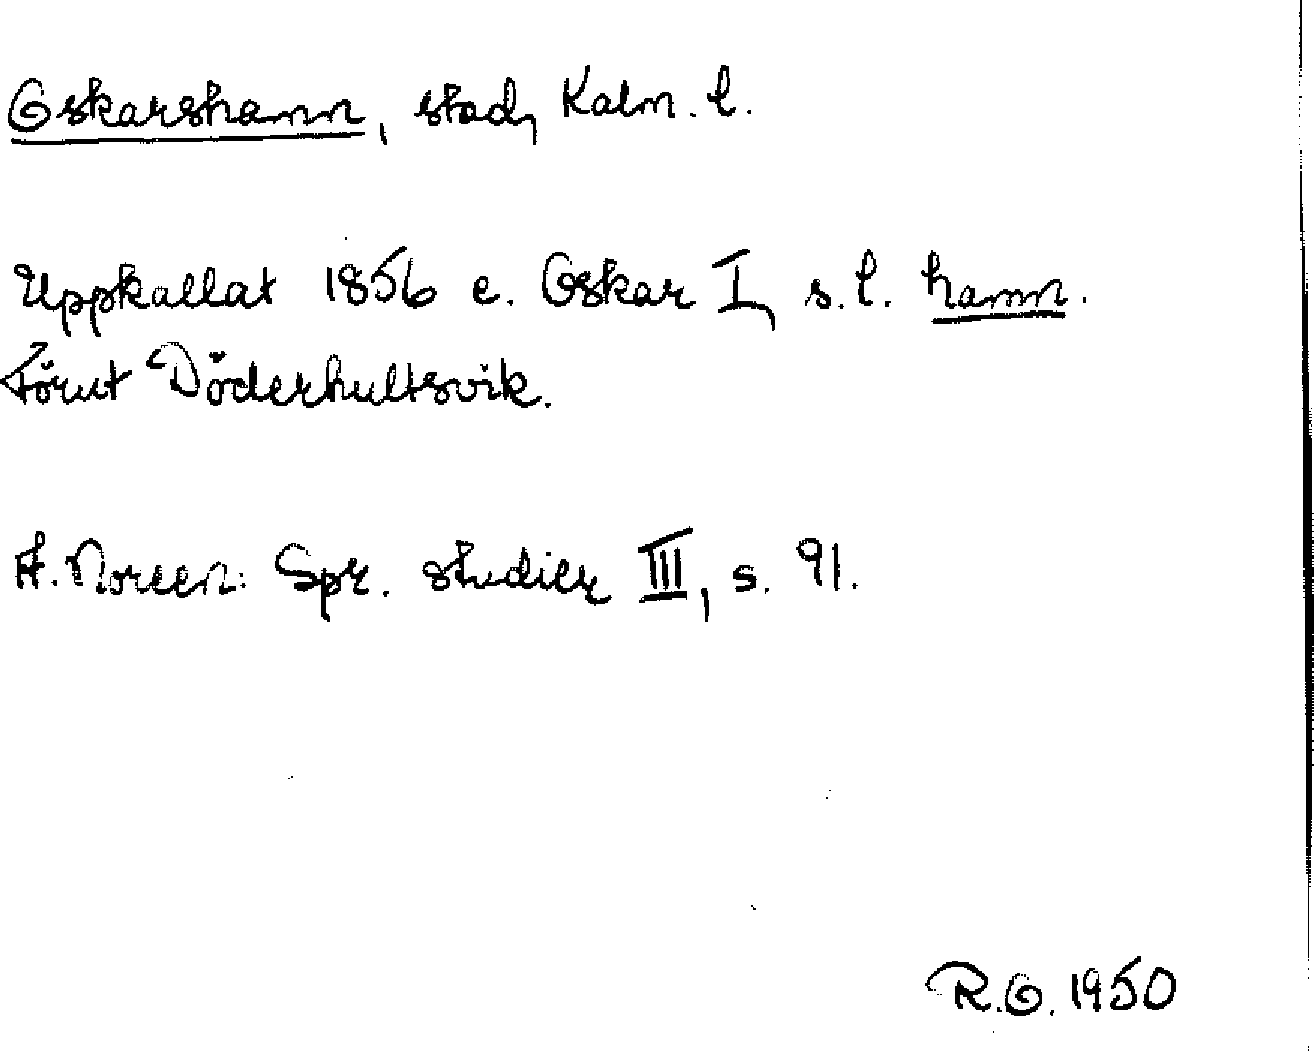 Oskarshamn, stad, Kalm. l.
Uppkallat 1856 e. Oskar I, s. l. hamn.
Förut Döderhultsvik.
A. Noreen: Spr. studier III, s. 91.
R.O. 1950